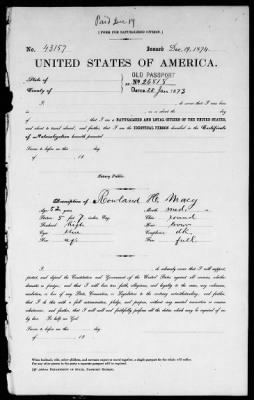 Paid Dec 19
[FORM FOR NATURALIZED CITIZEN.]
No. 43157 Issued Dec. 19, 1874.
UNITED STATES OF AMERICA.
OLD PASSPORT
State of
No 26818
County of
Dated 22 Jan 1873
I do swear that I was born
in on or about the day
of that I am a NATURALIZED AND LOYAL CITIZEN OF THE UNITED STATES,
and about to travel abroad; and further, that I am the IDENTICAL PERSON described in the Certificate
of Naturalization herewith presented
Sworn to before me this day
of 18
Notary Public.
Description of Rowland H. Macy
Age: 52 years Mouth: med.
Stature: 5 feet 7 inches, Eng. Chin: round
Forehead: high Hair: brown
Eyes: blue Complexion: dk
Nose: Face: full
I do solemnly swear that I will support,
protect, and defend the Constitution and Government of the United States against all enemies, whether
domestic or foreign; and that I will bear true faith, allegiance, and loyalty to the same, any ordinance,
resolution, or law of any State, Convention, or Legislature to the contrary notwithstanding; and further,
that I do this with a full determination, pledge, and purpose, without any mental reservation or evasion
whatsoever; and further, that I will well and faithfully perform all the duties which may be required of
me by law. So help me God!
Sworn to before me this day
of 18
When husband, wife, minor children, and servants expect to travel together, a single passport for the whole will suffice.
For any other person in the party a separate passport will be required.
DEPARTMENT OF STATE, PASSPORT BUREAU.